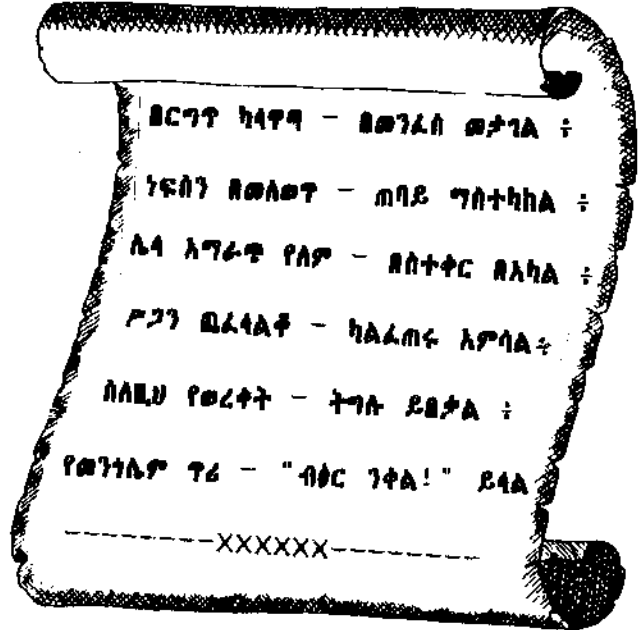 በርግጥ ካላዋጣ - በመንፈስ መታገል ፥
ነፍስን በመለወጥ - ጠባይ ማስተካከል ፥
ሌላ አማራጭ የለም - በስተቀር በአካል ፥
ሥጋን ጨፈላልቆ - ካልፈጠሩ አምሳል ፥
ስለዚህ የወረቀት - ትግሉ ይበቃል ፥
የመንጎሌም ጥሪ - "ብፅር ንቀል!" ይላል
---------XXXXXX---------